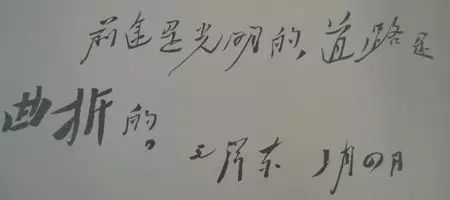 前途是光明的,道路是
曲折的。
毛泽东 1月4日